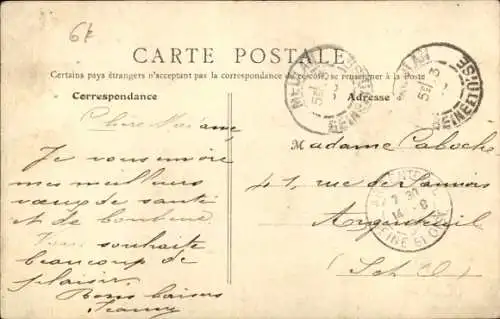 6f
CARTE POSTALE
Certains pays étrangers n'acceptent pas la correspondance au recto, se renseigner à la Poste
Correspondance
Adresse
Chère Madame
Je vous envoie
mes meilleurs
vœux de santé
et de bonheur
souhaite
beaucoup de
plaisir.
Bons baisers
Jeanne
Madame Caboche
41, rue des
Argenteuil
S et O
SEINE ET OISE
SEINE ET OISE
SEINE ET OISE